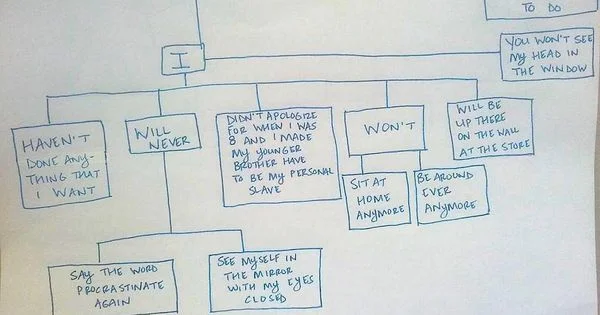 TO DO
I
YOU WON'T SEE
MY HEAD IN
THE WINDOW
HAVEN'T
DONE ANY-
THING THAT
I WANT
WILL
NEVER
DIDN'T APOLOGIZE
FOR WHEN I WAS
8 AND I MADE
MY YOUNGER
BROTHER HAVE
TO BE MY PERSONAL
SLAVE
WON'T
WILL BE
UP THERE
ON THE WALL
AT THE STORE
SIT AT
HOME
ANYMORE
BE AROUND
EVER
ANYMORE
SAY THE WORD
PROCRASTINATE
AGAIN
SEE MYSELF IN
THE MIRROR
WITH MY EYES
CLOSED